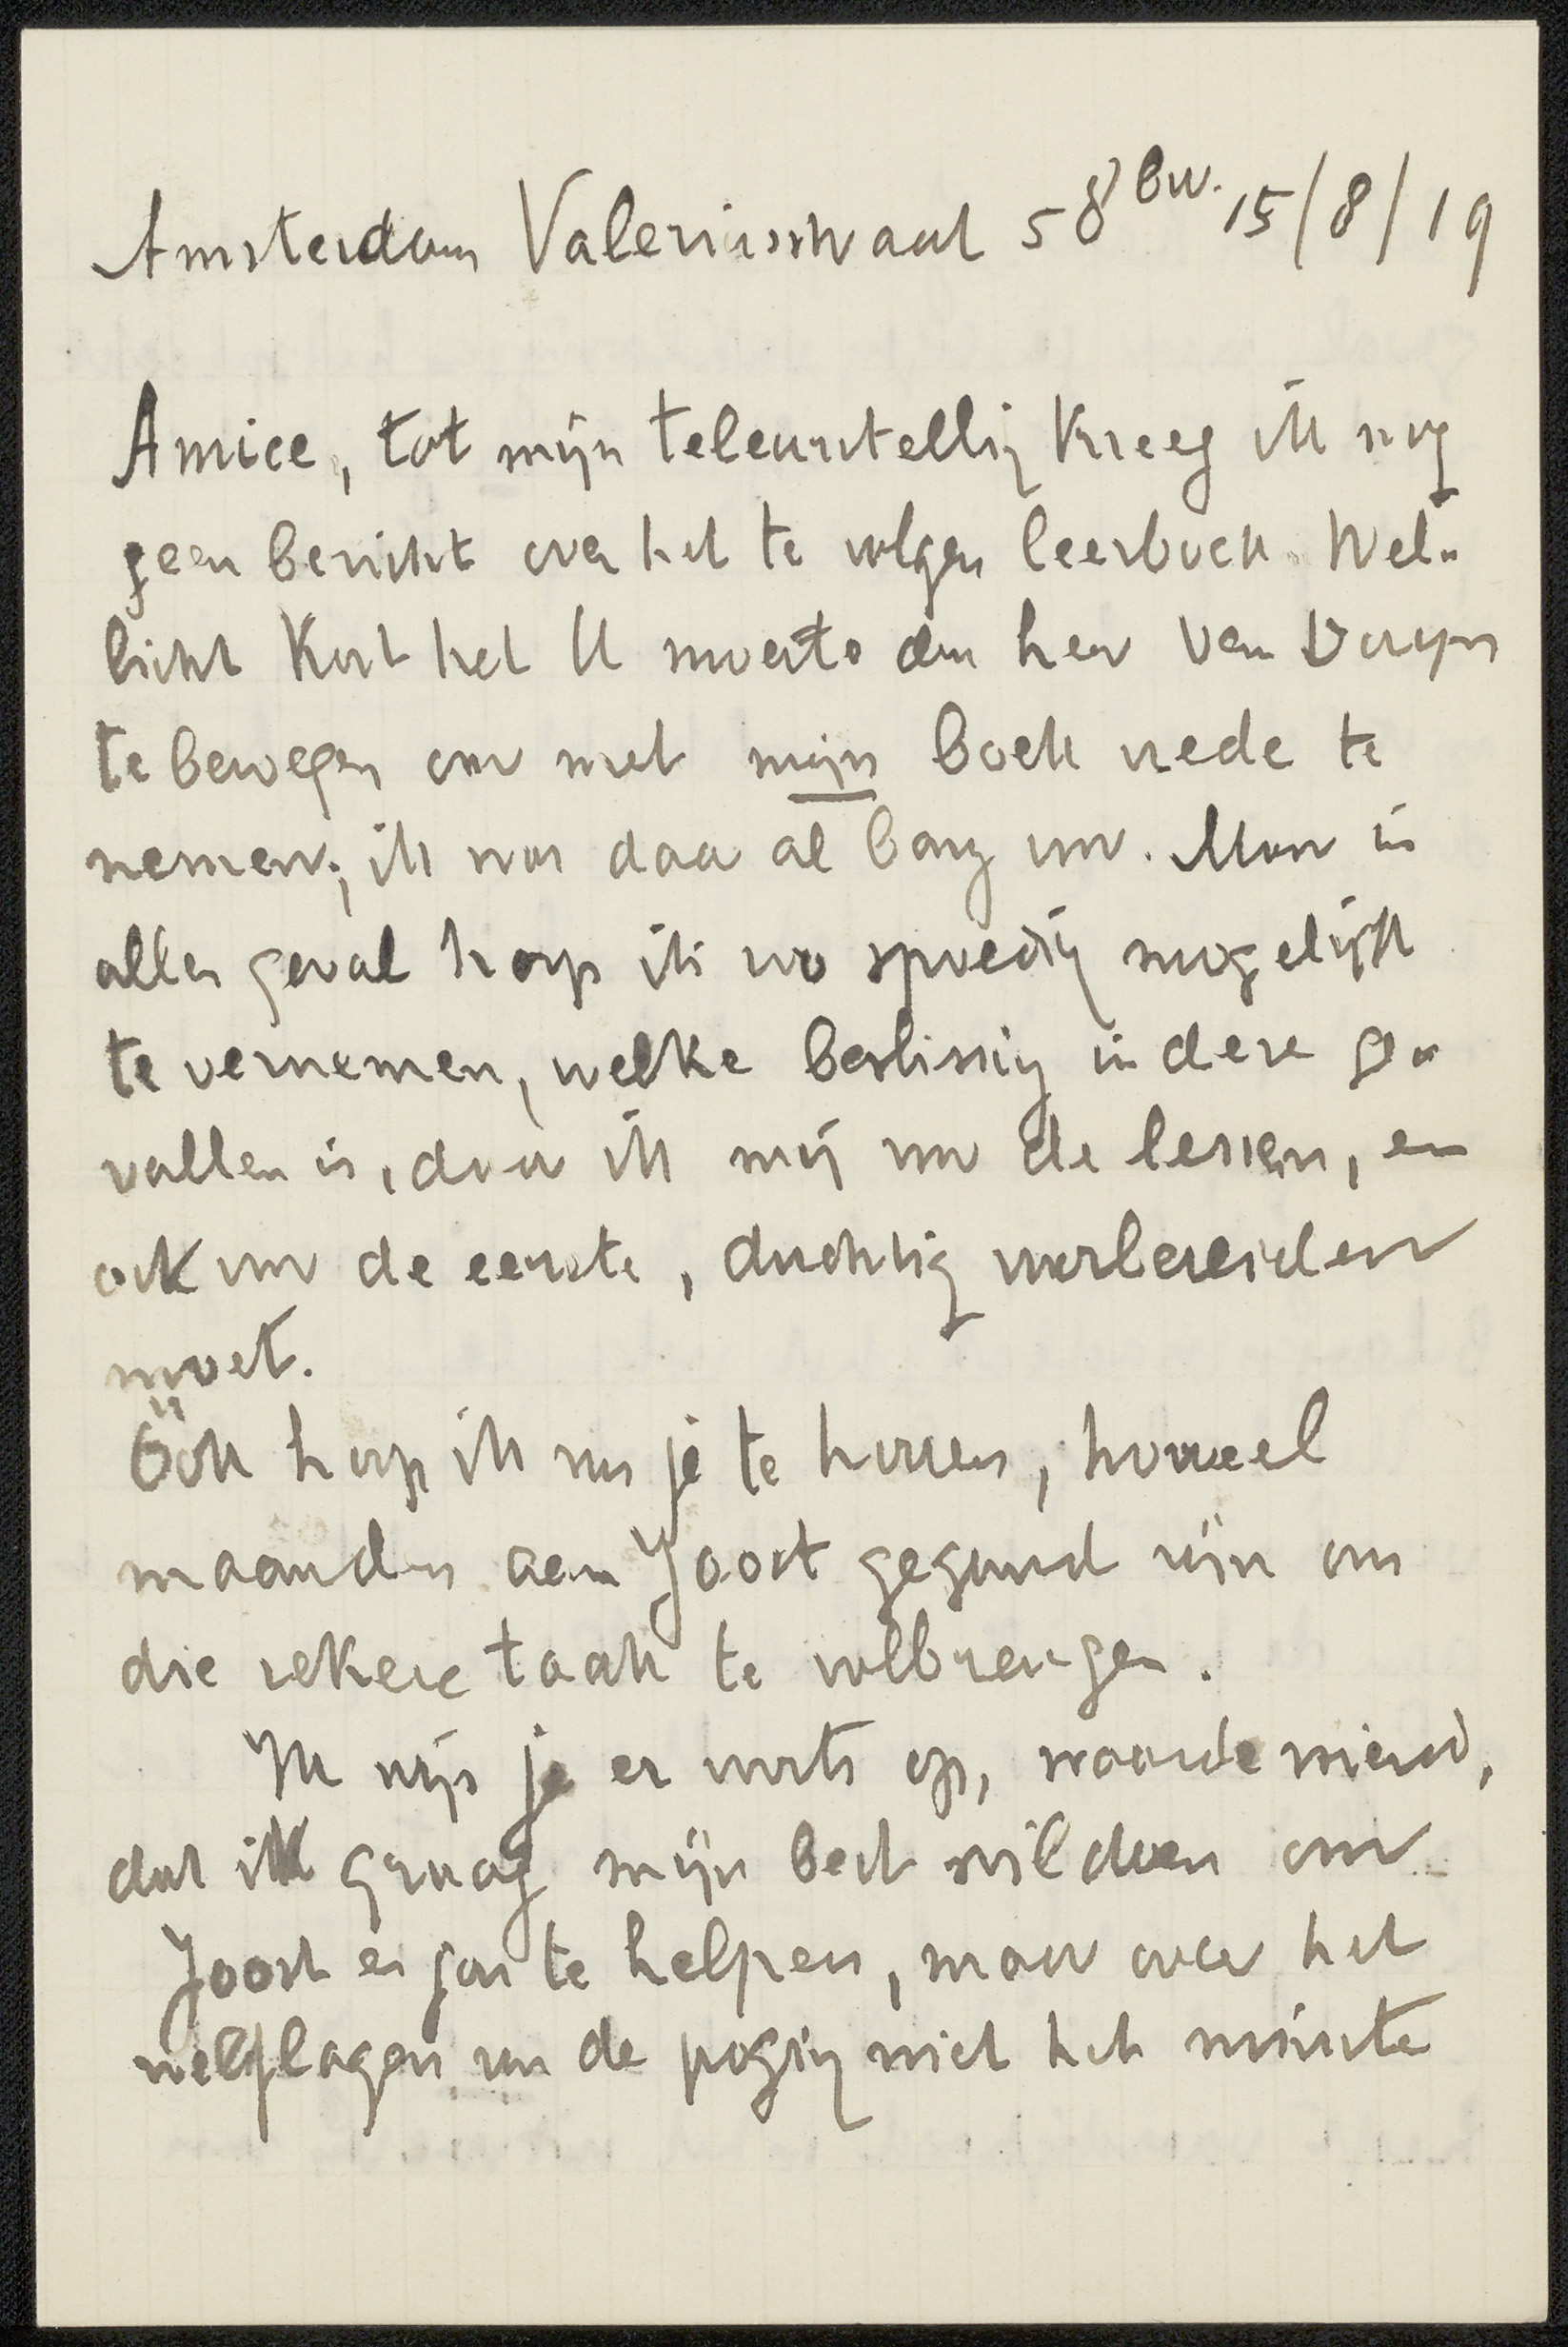 Amsterdam Valeriusstraat 58 bov. 15/8/19
Amice, tot mijn teleurstelling kreeg ik nog
geen bericht over het te volgen leerboek. Wel-
licht kost het U moeite den heer Van
te bewegen om met mijn boek vrede te
nemen; ik was daar al bang voor. Maar in
allen geval hoop ik zoo spoedig mogelijk
te vernemen, welke beslissing in deze ge-
vallen is, daar ik mij voor de lessen, en
ook voor de eerste, duchtig voorbereiden
moet.
Öok hoop ik van je te hooren, hoeveel
maanden aan Joost gegund zijn om
die zekere taak te volbrengen.
Ik wijs je er voorts op, waarde vriend,
dat ik graag mijn best wil doen om
Joost er door te helpen, maar over het
welslagen van de poging niet het minste